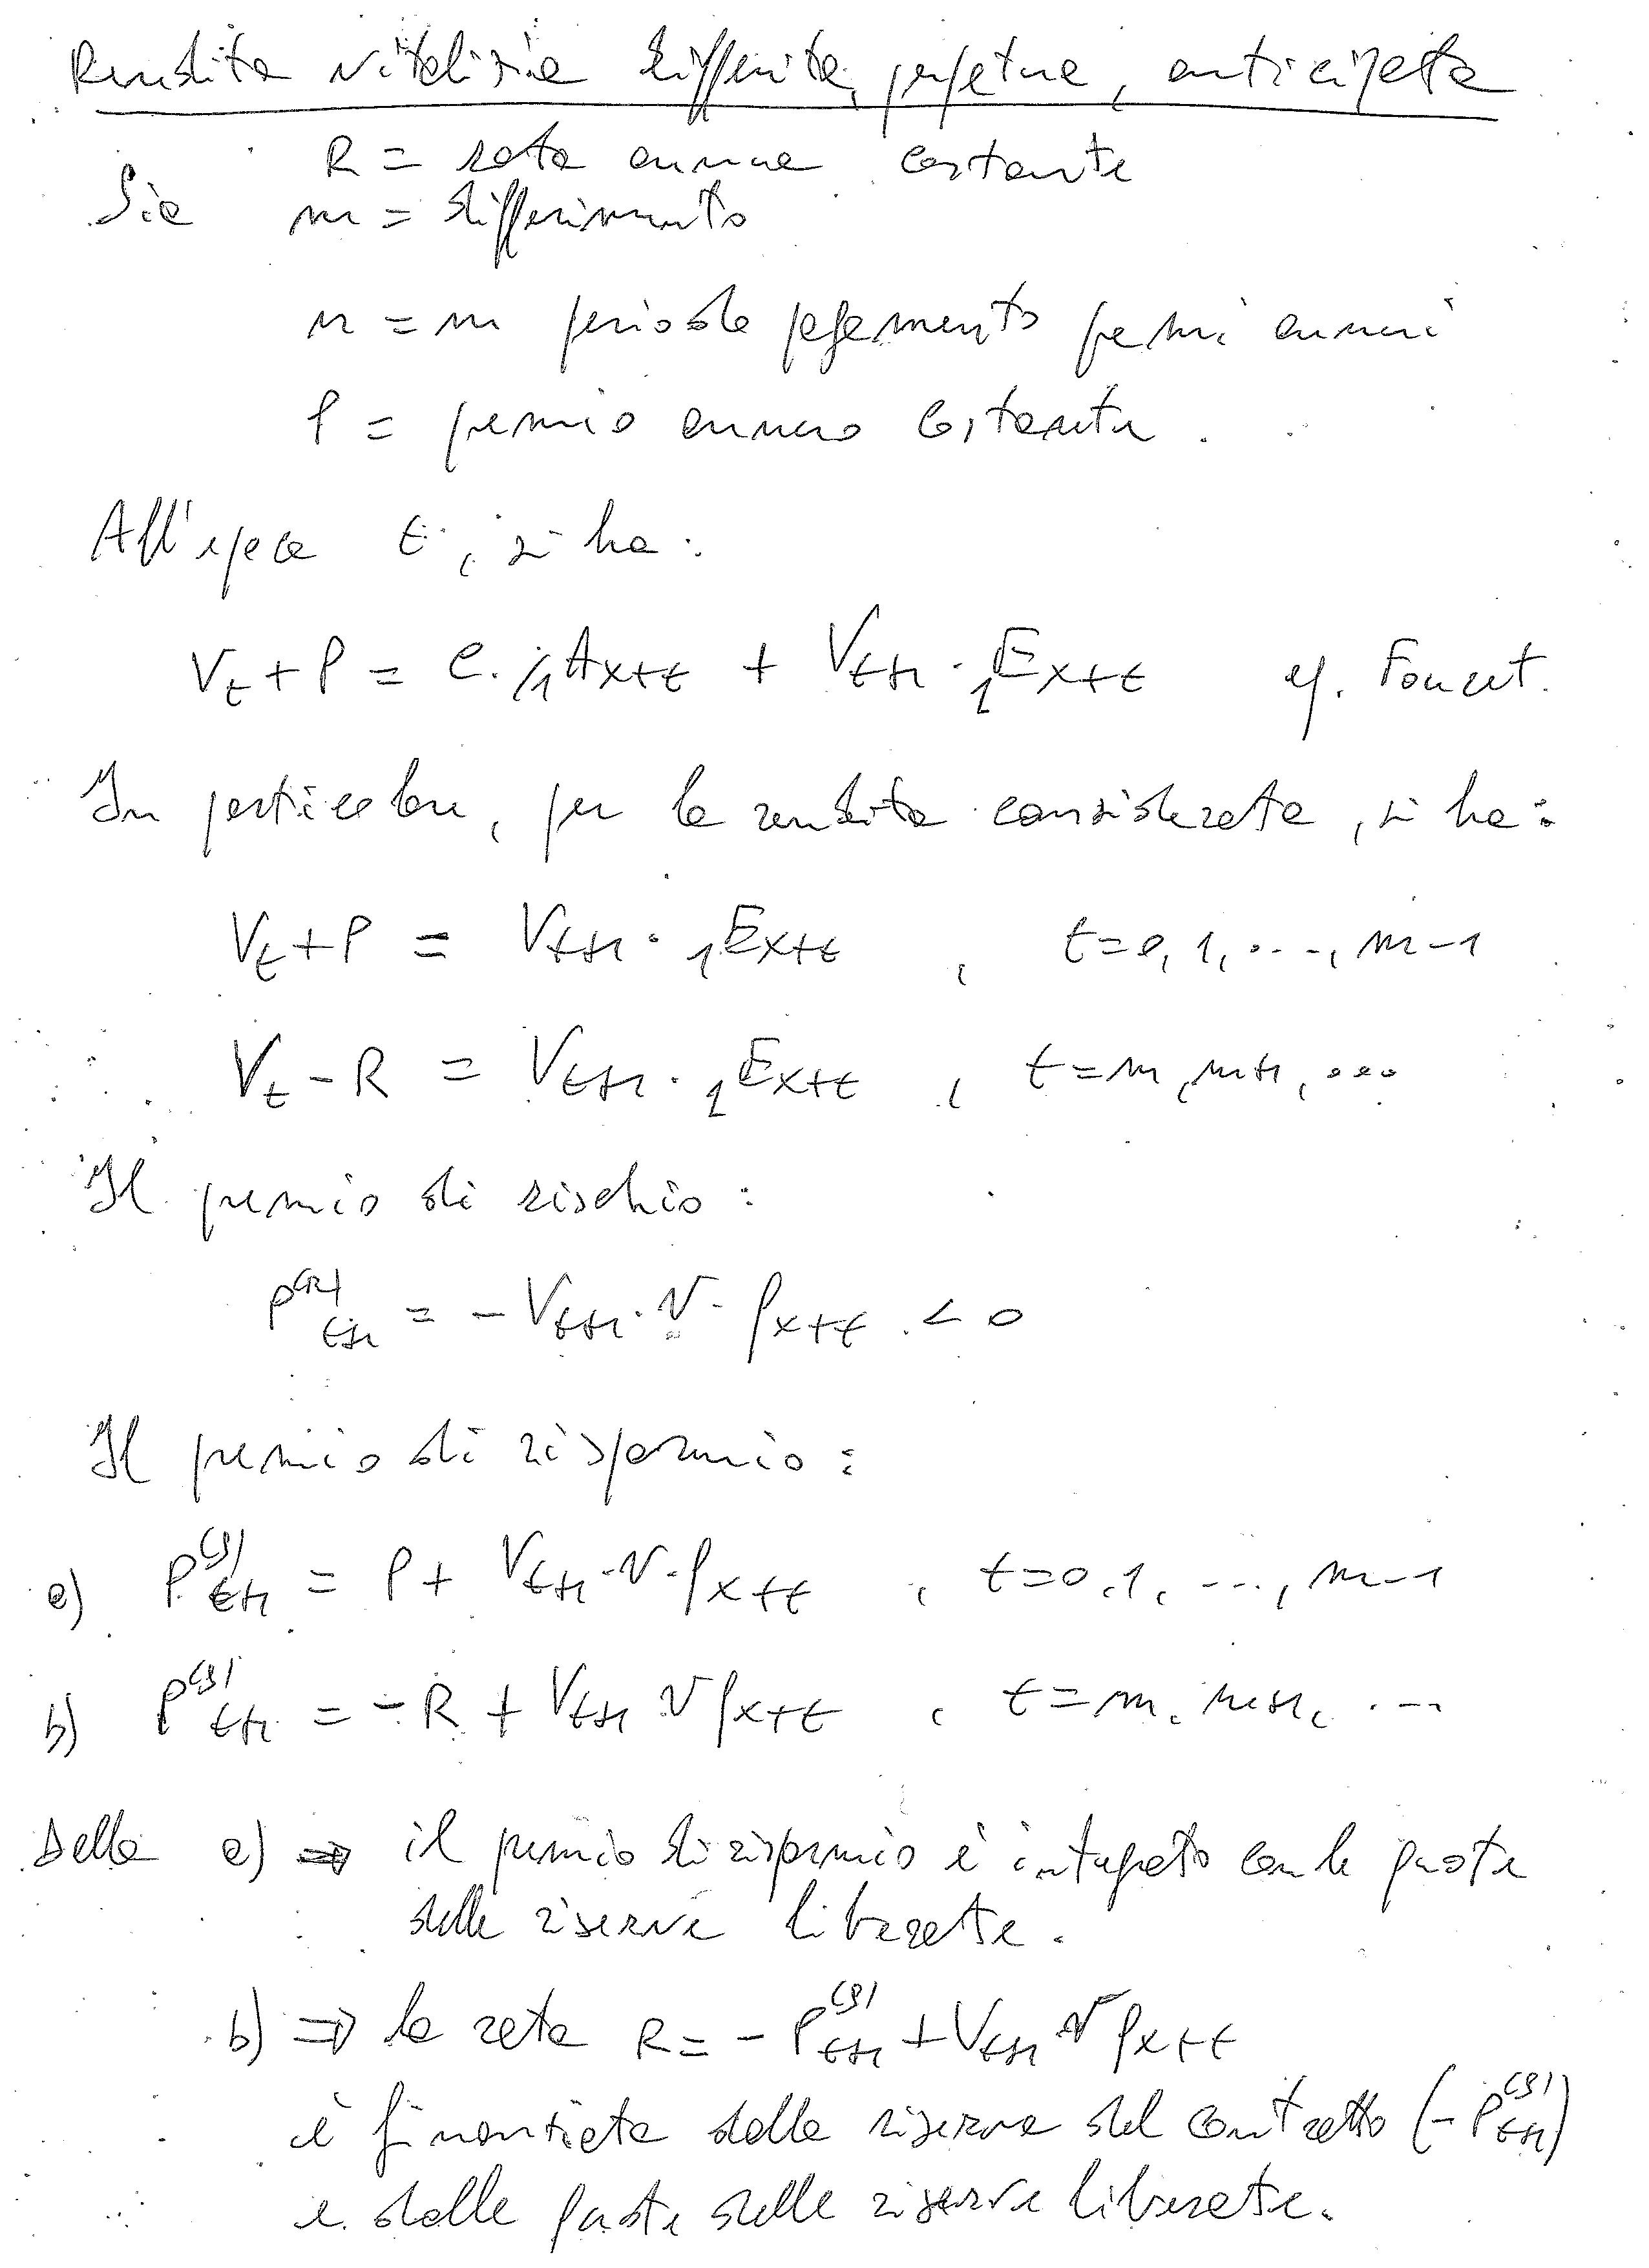 Rendita vitalizia differita, perpetua, anticipata
R = rata annua costante
Sia m = differimento
n = m periodo pagamento premi annui
P = premio annuo costante.
All'epoca t, si ha:
V_t + P = C · /₁A_{x+t} + V_{t+1} · ₁E_{x+t} eq. Fouret.
In particolare, per la rendita considerata, si ha:
V_t + P = V_{t+1} · ₁E_{x+t} , t = 0, 1, ..., m-1
V_t - R = V_{t+1} · ₁E_{x+t} , t = m, m+1, ...
Il premio di rischio:
P^{(R)}_{t+1} = - V_{t+1} · v · q_{x+t} < 0
Il premio di risparmio:
a) P^{(S)}_{t+1} = P + V_{t+1} · v · q_{x+t} , t = 0, 1, ..., m-1
b) P^{(S)}_{t+1} = - R + V_{t+1} v q_{x+t} , t = m, m+1, ...
Dalla a) ⇒ il premio di risparmio è integrato con le quote
delle riserve liberate.
b) ⇒ la rata R = - P^{(S)}_{t+1} + V_{t+1} v q_{x+t}
è finanziata dalla riserva del contratto (- P^{(S)}_{t+1})
e dalle quote delle riserve liberate.